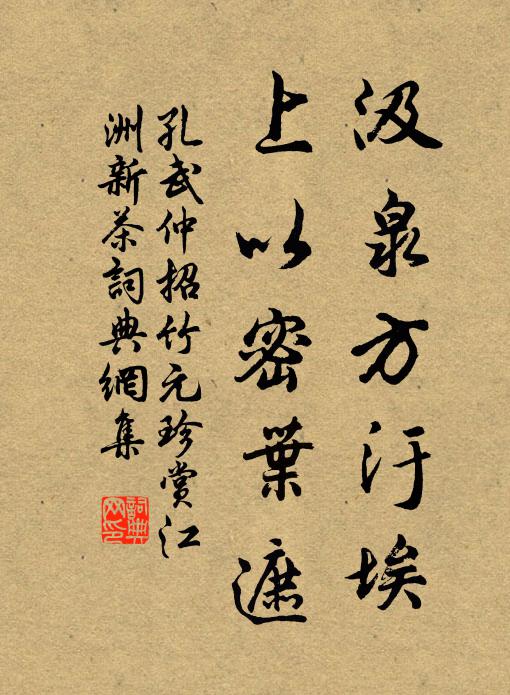 汲泉方汙埃
上以密葉遮
孔武仲招竹元珍賞江
洲新茶詞典網集
詞典
网印